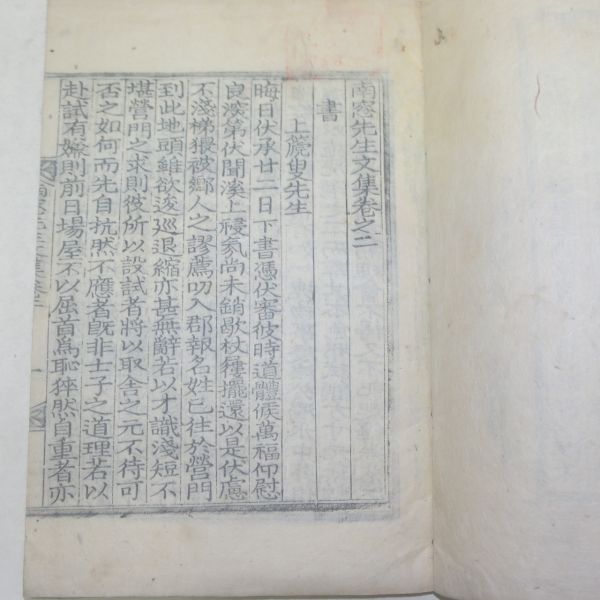 南窓先生文集卷之二
書
上麓叟先生
晦日伏承廿二日下書憑伏審彼時道體候萬福仰慰
良湥第伏聞溪上祲氣尚未銷歇杖種擺還以是伏慮
不淺梯猥被鄉人之謬薦叨入郡報名姓已往於營門
到此地頭雖欲逡巡退縮亦甚無辭若以才識淺短不
堪營門之求則彼所以設試者將以取舍之元不待可
否之如何而先自抗然不應者旣非士子之道理若以
赴試有嫌則前日場屋不以屈首爲恥猝然自重者亦